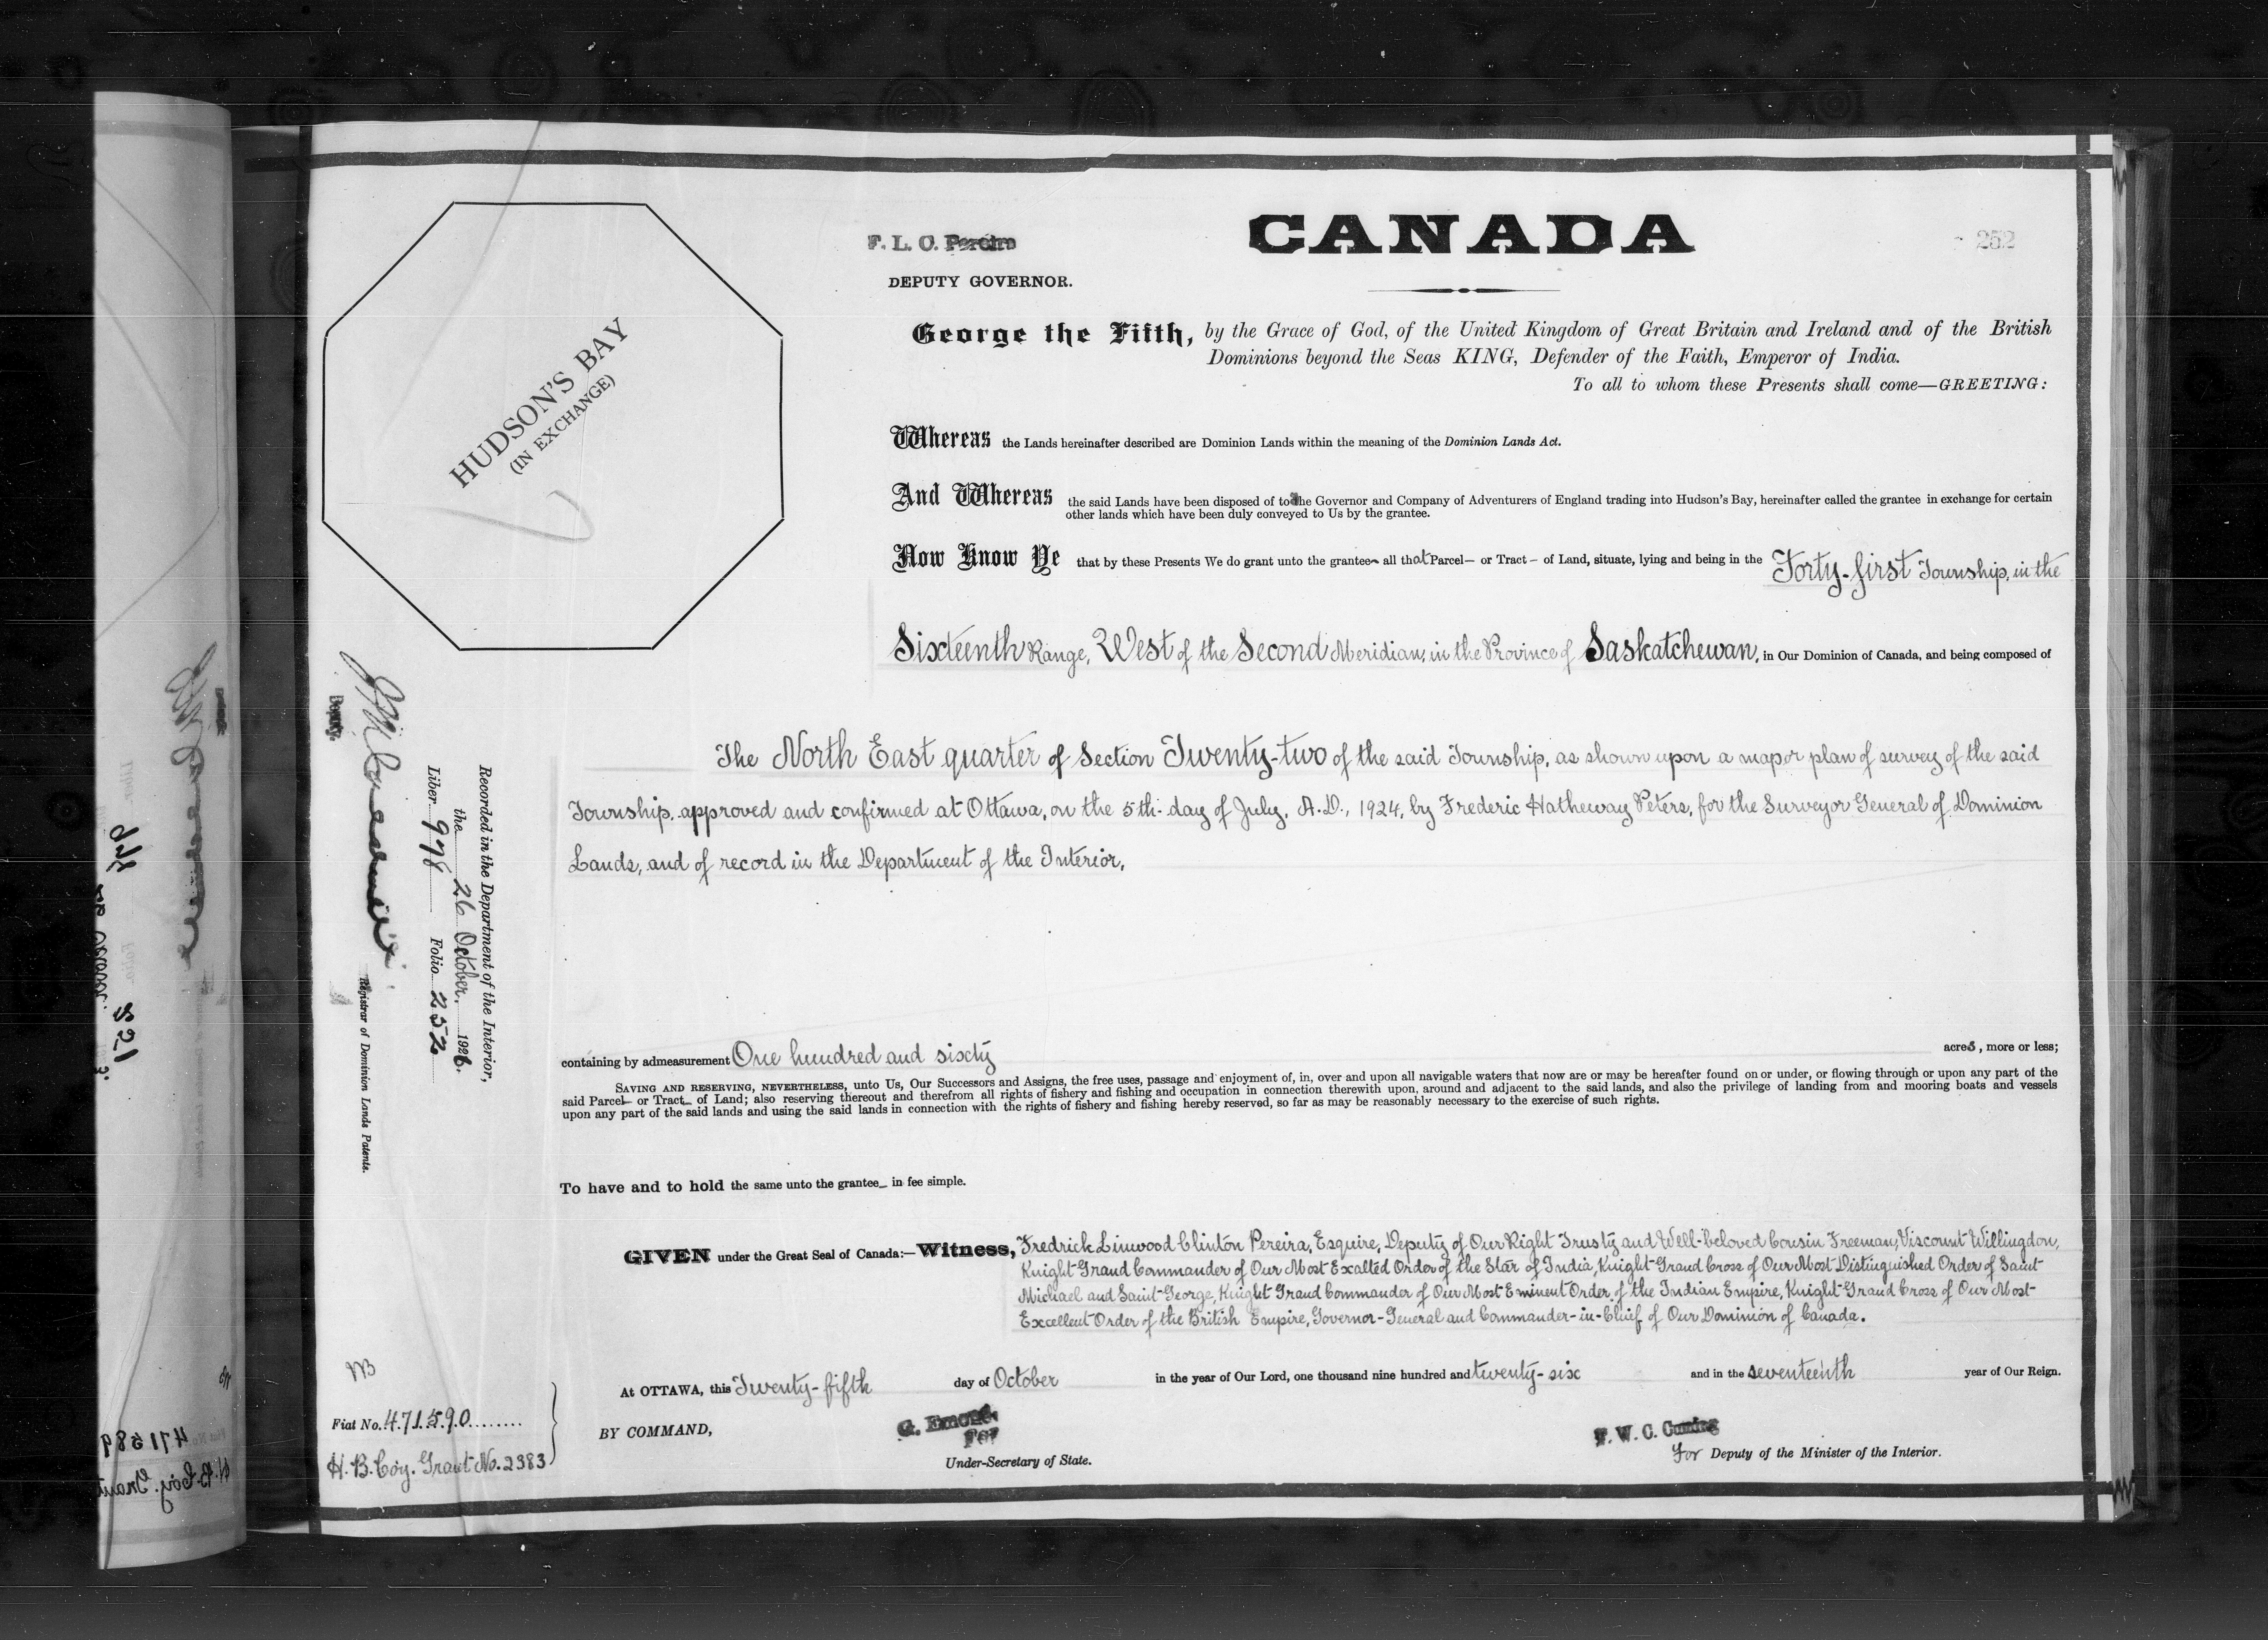 252
CANADA
F. L. C. Pereira
DEPUTY GOVERNOR.
HUDSON'S BAY
(IN EXCHANGE)
George the Fifth, by the Grace of God, of the United Kingdom of Great Britain and Ireland and of the British
Dominions beyond the Seas KING, Defender of the Faith, Emperor of India.
To all to whom these Presents shall come—GREETING:
Whereas the Lands hereinafter described are Dominion Lands within the meaning of the Dominion Lands Act.
And Whereas the said Lands have been disposed of to the Governor and Company of Adventurers of England trading into Hudson's Bay, hereinafter called the grantee in exchange for certain
other lands which have been duly conveyed to Us by the grantee.
Now Know Ye that by these Presents We do grant unto the grantee all that Parcel— or Tract — of Land, situate, lying and being in the Forty-first Township, in the
Sixteenth Range, West of the Second Meridian, in the Province of Saskatchewan, in Our Dominion of Canada, and being composed of
The North East quarter of Section Twenty-two of the said Township, as shown upon a map or plan of survey of the said
Township, approved and confirmed at Ottawa, on the 5th day of July, A.D., 1924, by Frederic Hatheway Peters, for the Surveyor General of Dominion
Lands, and of record in the Department of the Interior,
containing by admeasurement One hundred and sixty acres, more or less;
SAVING AND RESERVING, NEVERTHELESS, unto Us, Our Successors and Assigns, the free uses, passage and enjoyment of, in, over and upon all navigable waters that now are or may be hereafter found on or under, or flowing through or upon any part of the
said Parcel— or Tract— of Land; also reserving thereout and therefrom all rights of fishery and fishing and occupation in connection therewith upon, around and adjacent to the said lands, and also the privilege of landing from and mooring boats and vessels
upon any part of the said lands and using the said lands in connection with the rights of fishery and fishing hereby reserved, so far as may be reasonably necessary to the exercise of such rights.
To have and to hold the same unto the grantee— in fee simple.
GIVEN under the Great Seal of Canada:—Witness, Fredrick Linwood Clinton Pereira, Esquire, Deputy of Our Right Trusty and Well-beloved Cousin Freeman, Viscount Willingdon,
Knight Grand Commander of Our Most Exalted Order of the Star of India, Knight Grand Cross of Our Most Distinguished Order of Saint
Michael and Saint George, Knight Grand Commander of Our Most Eminent Order of the Indian Empire, Knight Grand Cross of Our Most
Excellent Order of the British Empire, Governor-General and Commander-in-Chief of Our Dominion of Canada.
At OTTAWA, this Twenty-fifth day of October in the year of Our Lord, one thousand nine hundred and twenty-six and in the seventeenth year of Our Reign.
BY COMMAND,
G. Emond
For
Under-Secretary of State.
F. W. C. Cuming
For Deputy of the Minister of the Interior.
Recorded in the Department of the Interior,
the 26 October, 1926.
Liber 978 Folio 252
Deputy.
Registrar of Dominion Lands Patents.
Fiat No. 471590
H. B. Coy. Grant No. 2383
471589
H. B. Coy. Grant